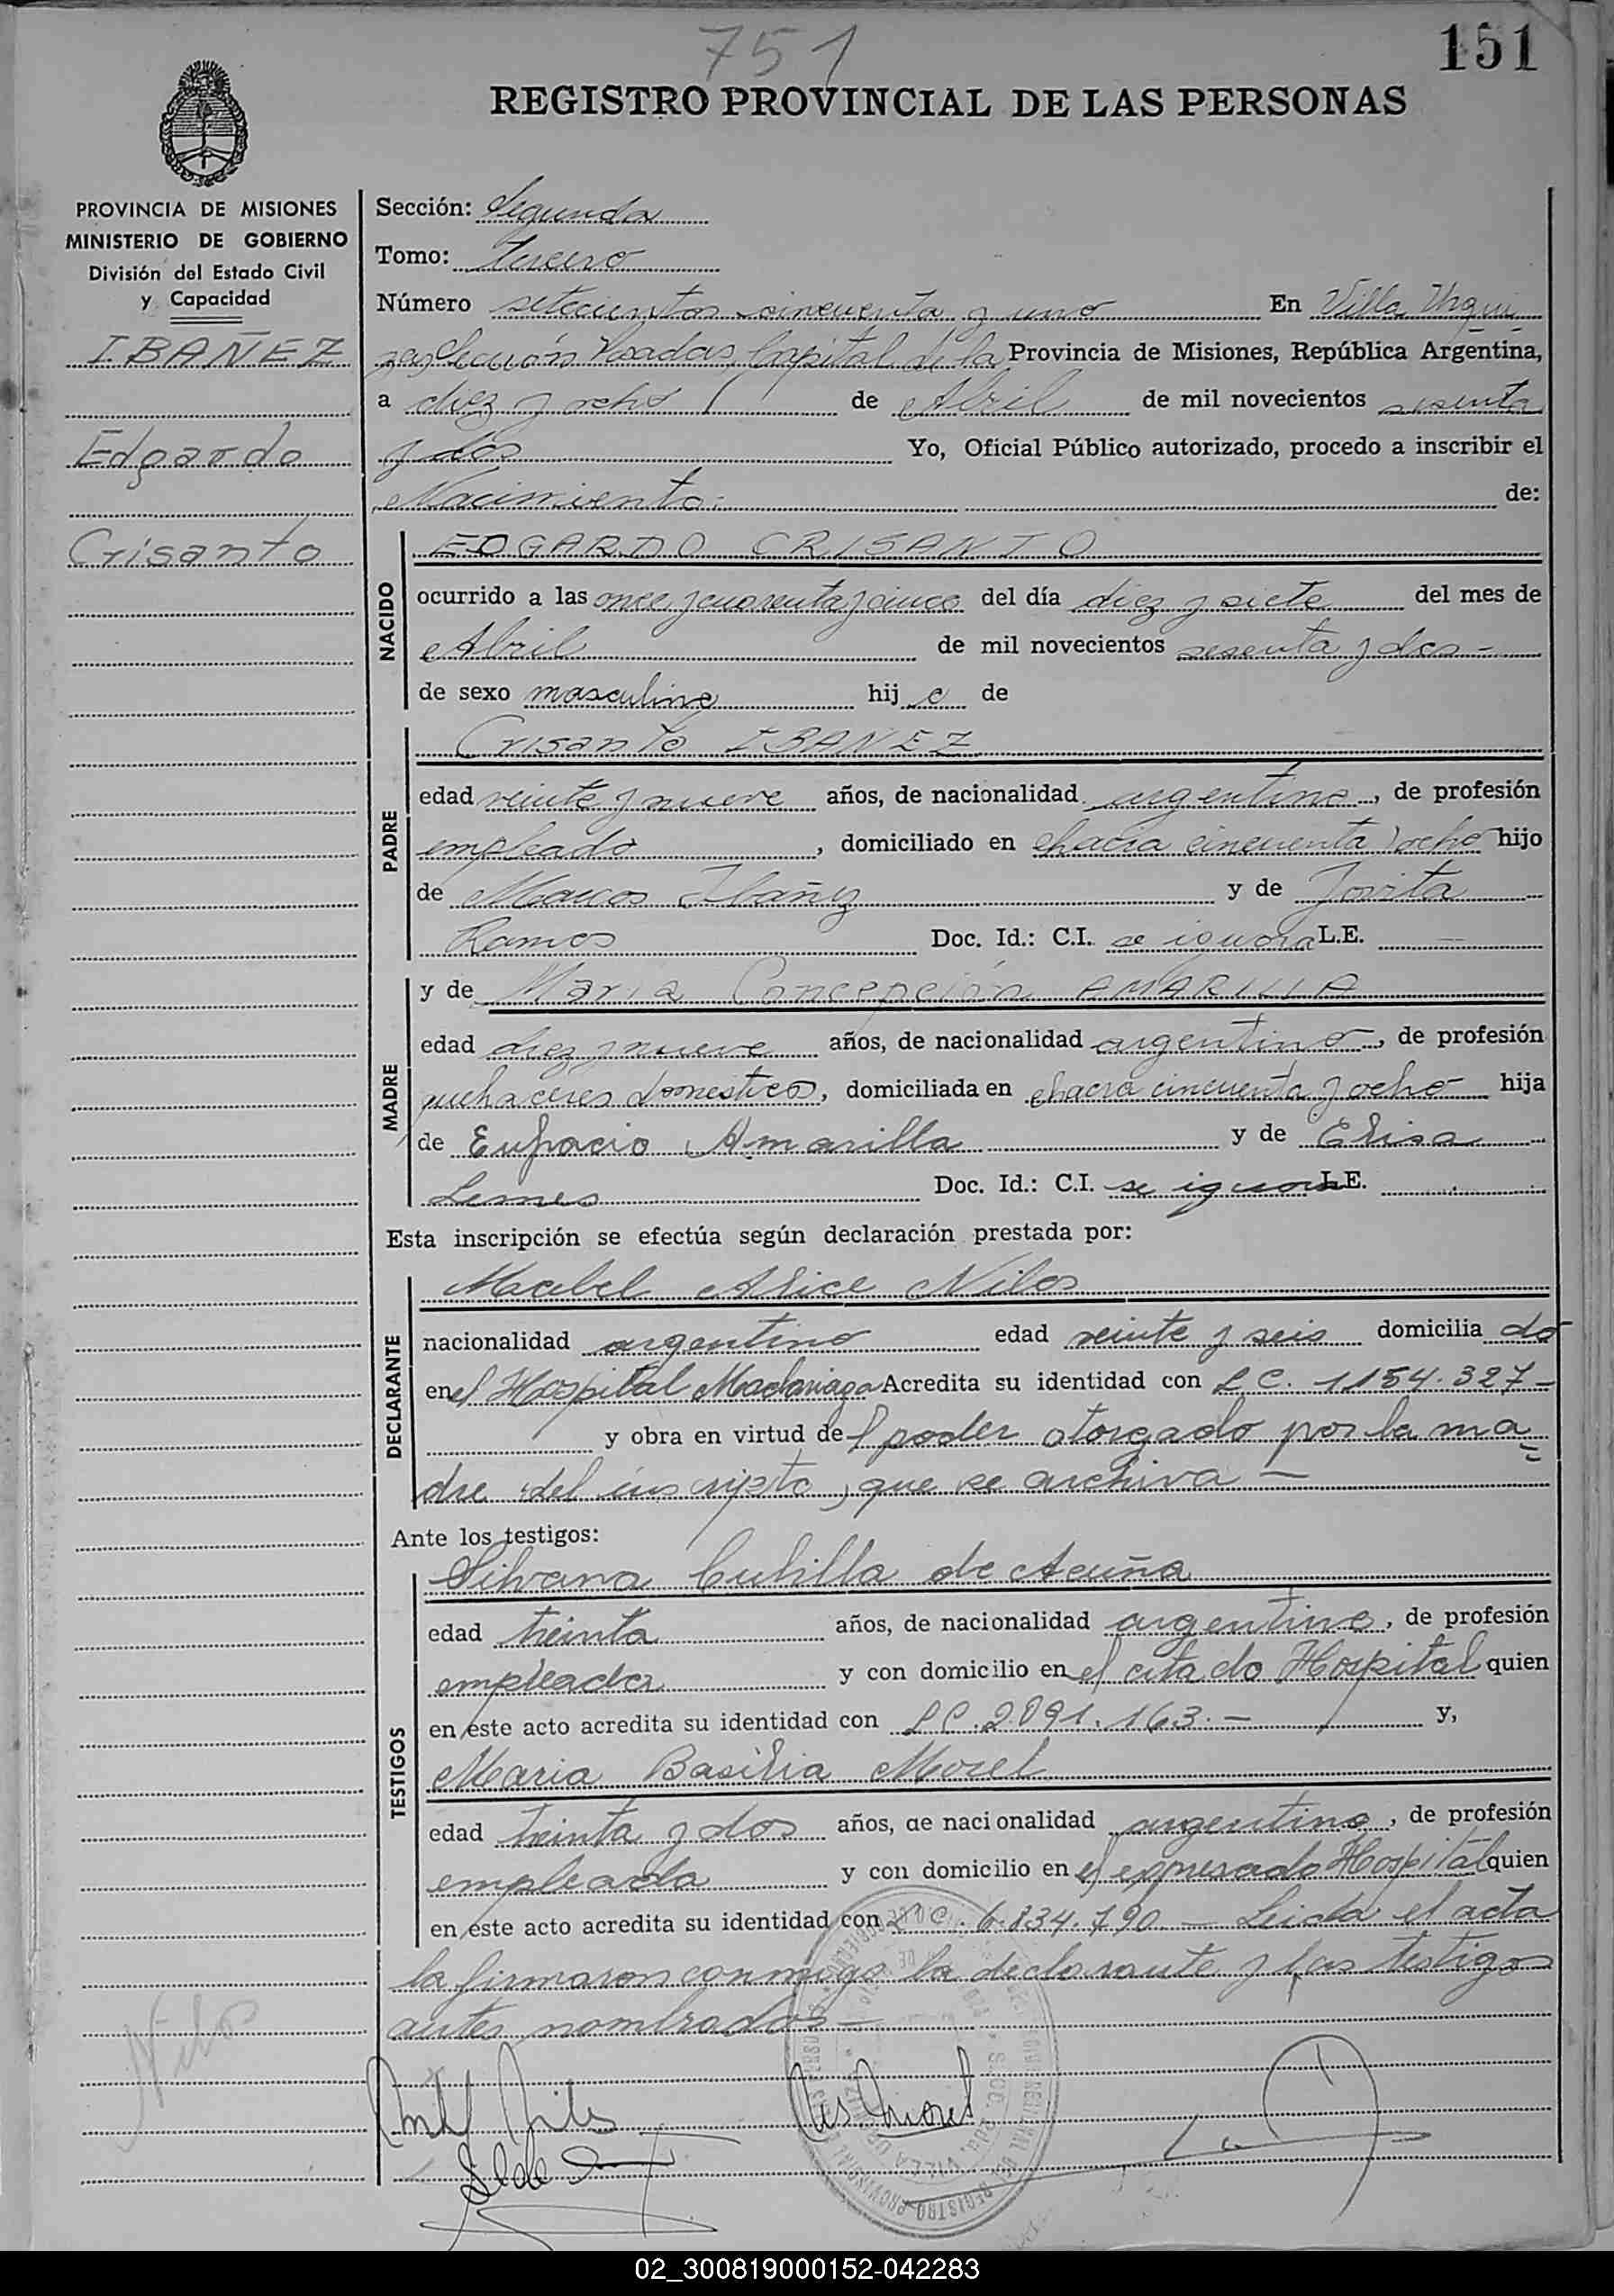 751
151
REGISTRO PROVINCIAL DE LAS PERSONAS
PROVINCIA DE MISIONES
MINISTERIO DE GOBIERNO
División del Estado Civil
y Capacidad
IBAÑEZ
Edgardo
Crisanto
Sección: Segunda
Tomo: tercero
Número setecientos cincuenta y uno En Villa Urqui
za, Sección Posadas, Capital de la Provincia de Misiones, República Argentina,
a diez y ocho de Abril de mil novecientos sesenta
y dos Yo, Oficial Público autorizado, procedo a inscribir el
Nacimiento: de:
NACIDO
EDGARDO CRISANTO
ocurrido a las once y cuarenta y cinco del día diez y siete del mes de
Abril de mil novecientos sesenta y dos -
de sexo masculino hijo de
PADRE
Crisanto IBAÑEZ
edad veinte y nueve años, de nacionalidad argentino, de profesión
empleado, domiciliado en chacra cincuenta y ocho hijo
de Marcos Ibañez y de Jovita
Ramos Doc. Id.: C.I. se ignora L.E. —
MADRE
y de Maria Concepción AMARILLA
edad diez y nueve años, de nacionalidad argentino, de profesión
quehaceres domestico, domiciliada en chacra cincuenta y ocho hija
de Eufracio Amarilla y de Elisa
Lemes Doc. Id.: C.I. se ignora L.E.
Esta inscripción se efectúa según declaración prestada por:
DECLARANTE
Mabel Alice Niles
nacionalidad argentino edad veinte y seis domiciliado
en el Hospital Madariaga Acredita su identidad con L.C. 1154.327-
y obra en virtud del poder otorgado por la ma
dre del inscripto, que se archiva —
Ante los testigos:
TESTIGOS
Silvana Cubilla de Acuña
edad treinta años, de nacionalidad argentino, de profesión
empleada y con domicilio en el citado Hospital quien
en este acto acredita su identidad con L.C. 2.091.163.- y,
Maria Basilia Morel
edad treinta y dos años, de nacionalidad argentino, de profesión
empleada y con domicilio en el expresado Hospital quien
en este acto acredita su identidad con L.C. 6.834.790 — Leida el acta
la firmaron conmigo la declarante y las testigos
antes nombrados —
Niles
02_300819000152-042283